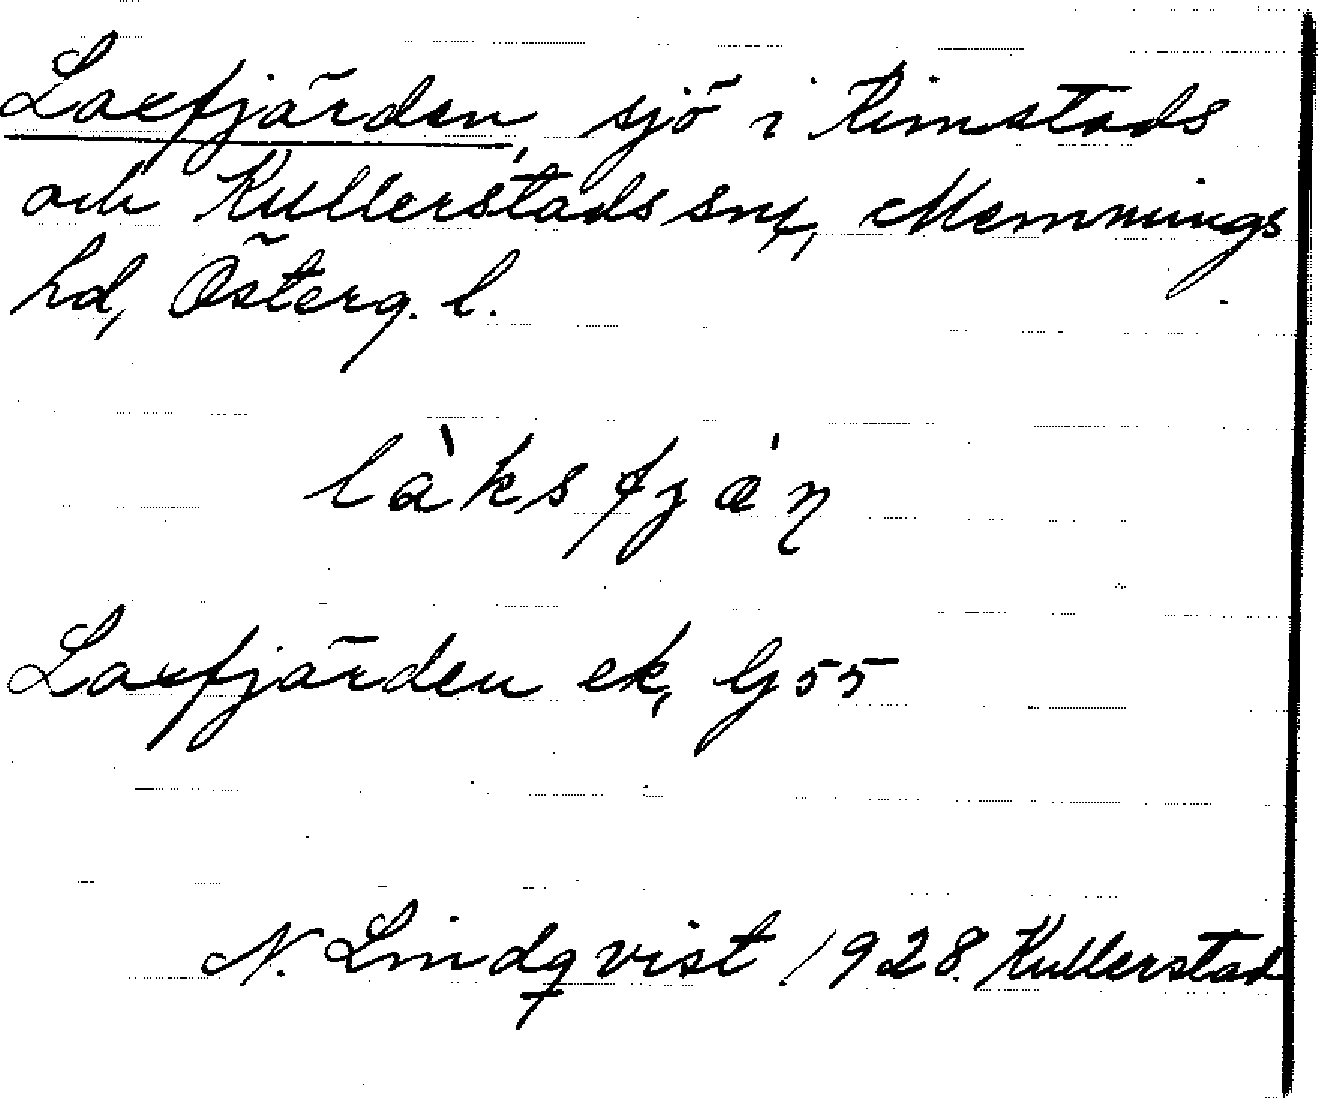 Laxfjärden, sjö i Kimstads
och Kullerstads snr, Memmings
hd, Österg. l.
làksfjæ̀ṇ
Laxfjärden ek, G 55
N. Lindqvist 1928. Kullerstad